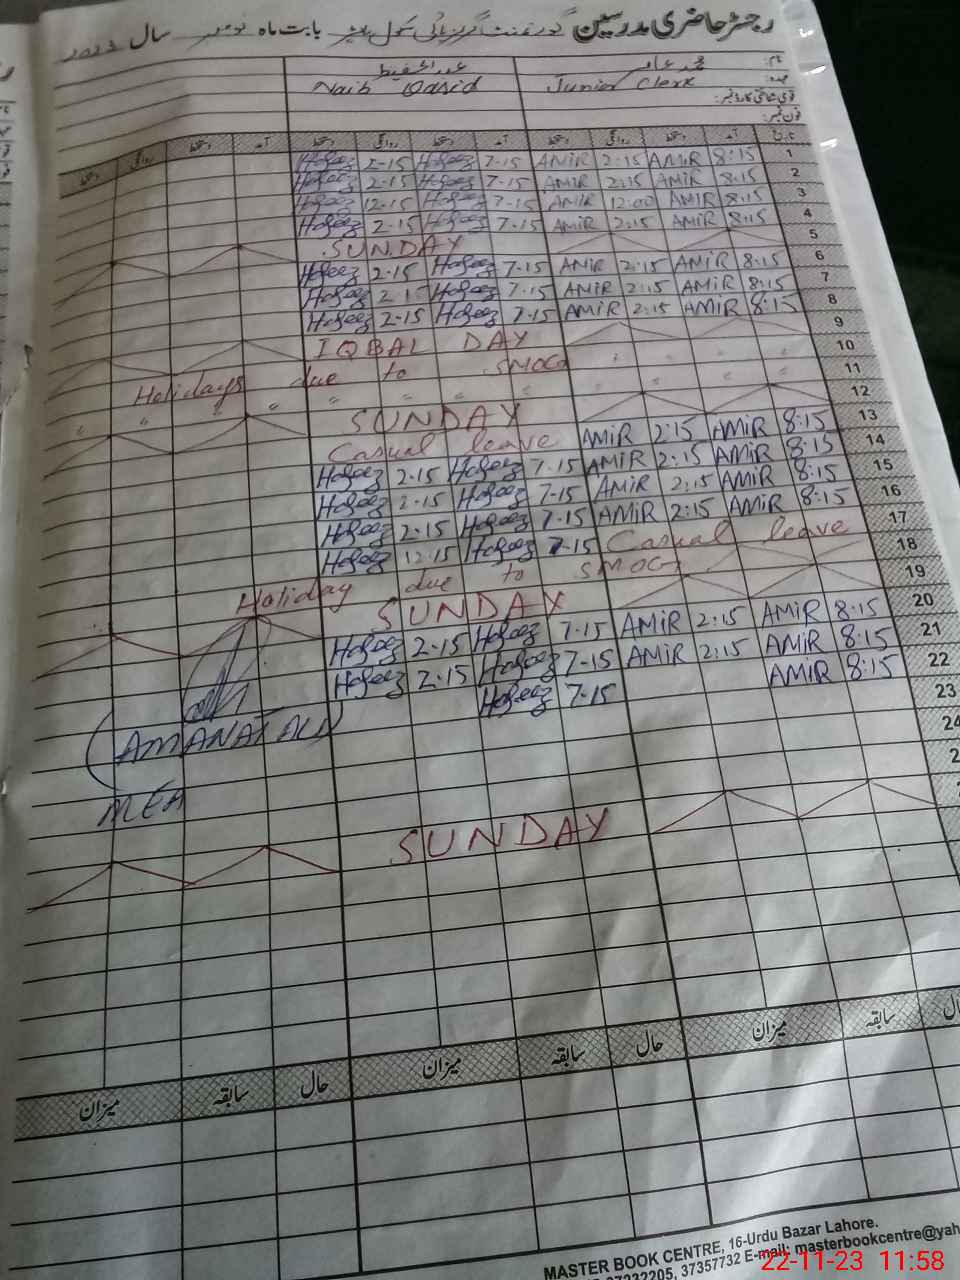 رجسٹر حاضری مدرسین گورنمنٹ گرلز ہائی سکول بابت ماہ نومبر سال 2023
نام: محمد عامر عبدالحفیظ
عہدہ: Junior Clerk Naib Qasid
قومی شناختی کارڈ نمبر:
فون نمبر:
تاریخ آمد دستخط روانگی دستخط آمد دستخط روانگی دستخط آمد دستخط روانگی دستخط
Hafeez 2-15 Hafeez 7-15 AMiR 2:15 AMiR 8:15 1
Hafeez 2-15 Hafeez 7-15 AMiR 2:15 AMiR 8:15 2
Hafeez 12-15 Hafeez 7-15 AMiR 12:00 AMiR 8:15 3
Hafeez 2-15 Hafeez 7-15 AMiR 2:15 AMiR 8:15 4
SUNDAY 5
Hafeez 2-15 Hafeez 7-15 AMiR 2:15 AMiR 8:15 6
Hafeez 2-15 Hafeez 7-15 AMiR 2:15 AMiR 8:15 7
Hafeez 2-15 Hafeez 7-15 AMiR 2:15 AMiR 8:15 8
IQBAL DAY 9
Holidays due to SMOG 10
" " " " " " " " 11
SUNDAY 12
Casual leave AMiR 2:15 AMiR 8:15 13
Hafeez 2-15 Hafeez 7-15 AMiR 2:15 AMiR 8:15 14
Hafeez 2-15 Hafeez 7-15 AMiR 2:15 AMiR 8:15 15
Hafeez 2-15 Hafeez 7-15 AMiR 2:15 AMiR 8:15 16
Hafeez 12-15 Hafeez 7-15 Casual leave 17
Holiday due to SMOG 18
SUNDAY 19
Hafeez 2-15 Hafeez 7-15 AMiR 2:15 AMiR 8:15 20
Hafeez 2-15 Hafeez 7-15 AMiR 2:15 AMiR 8:15 21
Hafeez 7-15 AMiR 8:15 22
23
(AMANAT ALI)
24
MEA
SUNDAY
حال سابقہ میزان حال سابقہ میزان حال سابقہ میزان
MASTER BOOK CENTRE, 16-Urdu Bazar Lahore.
37232205, 37357732 E-mail: masterbookcentre@yah
22-11-23 11:58